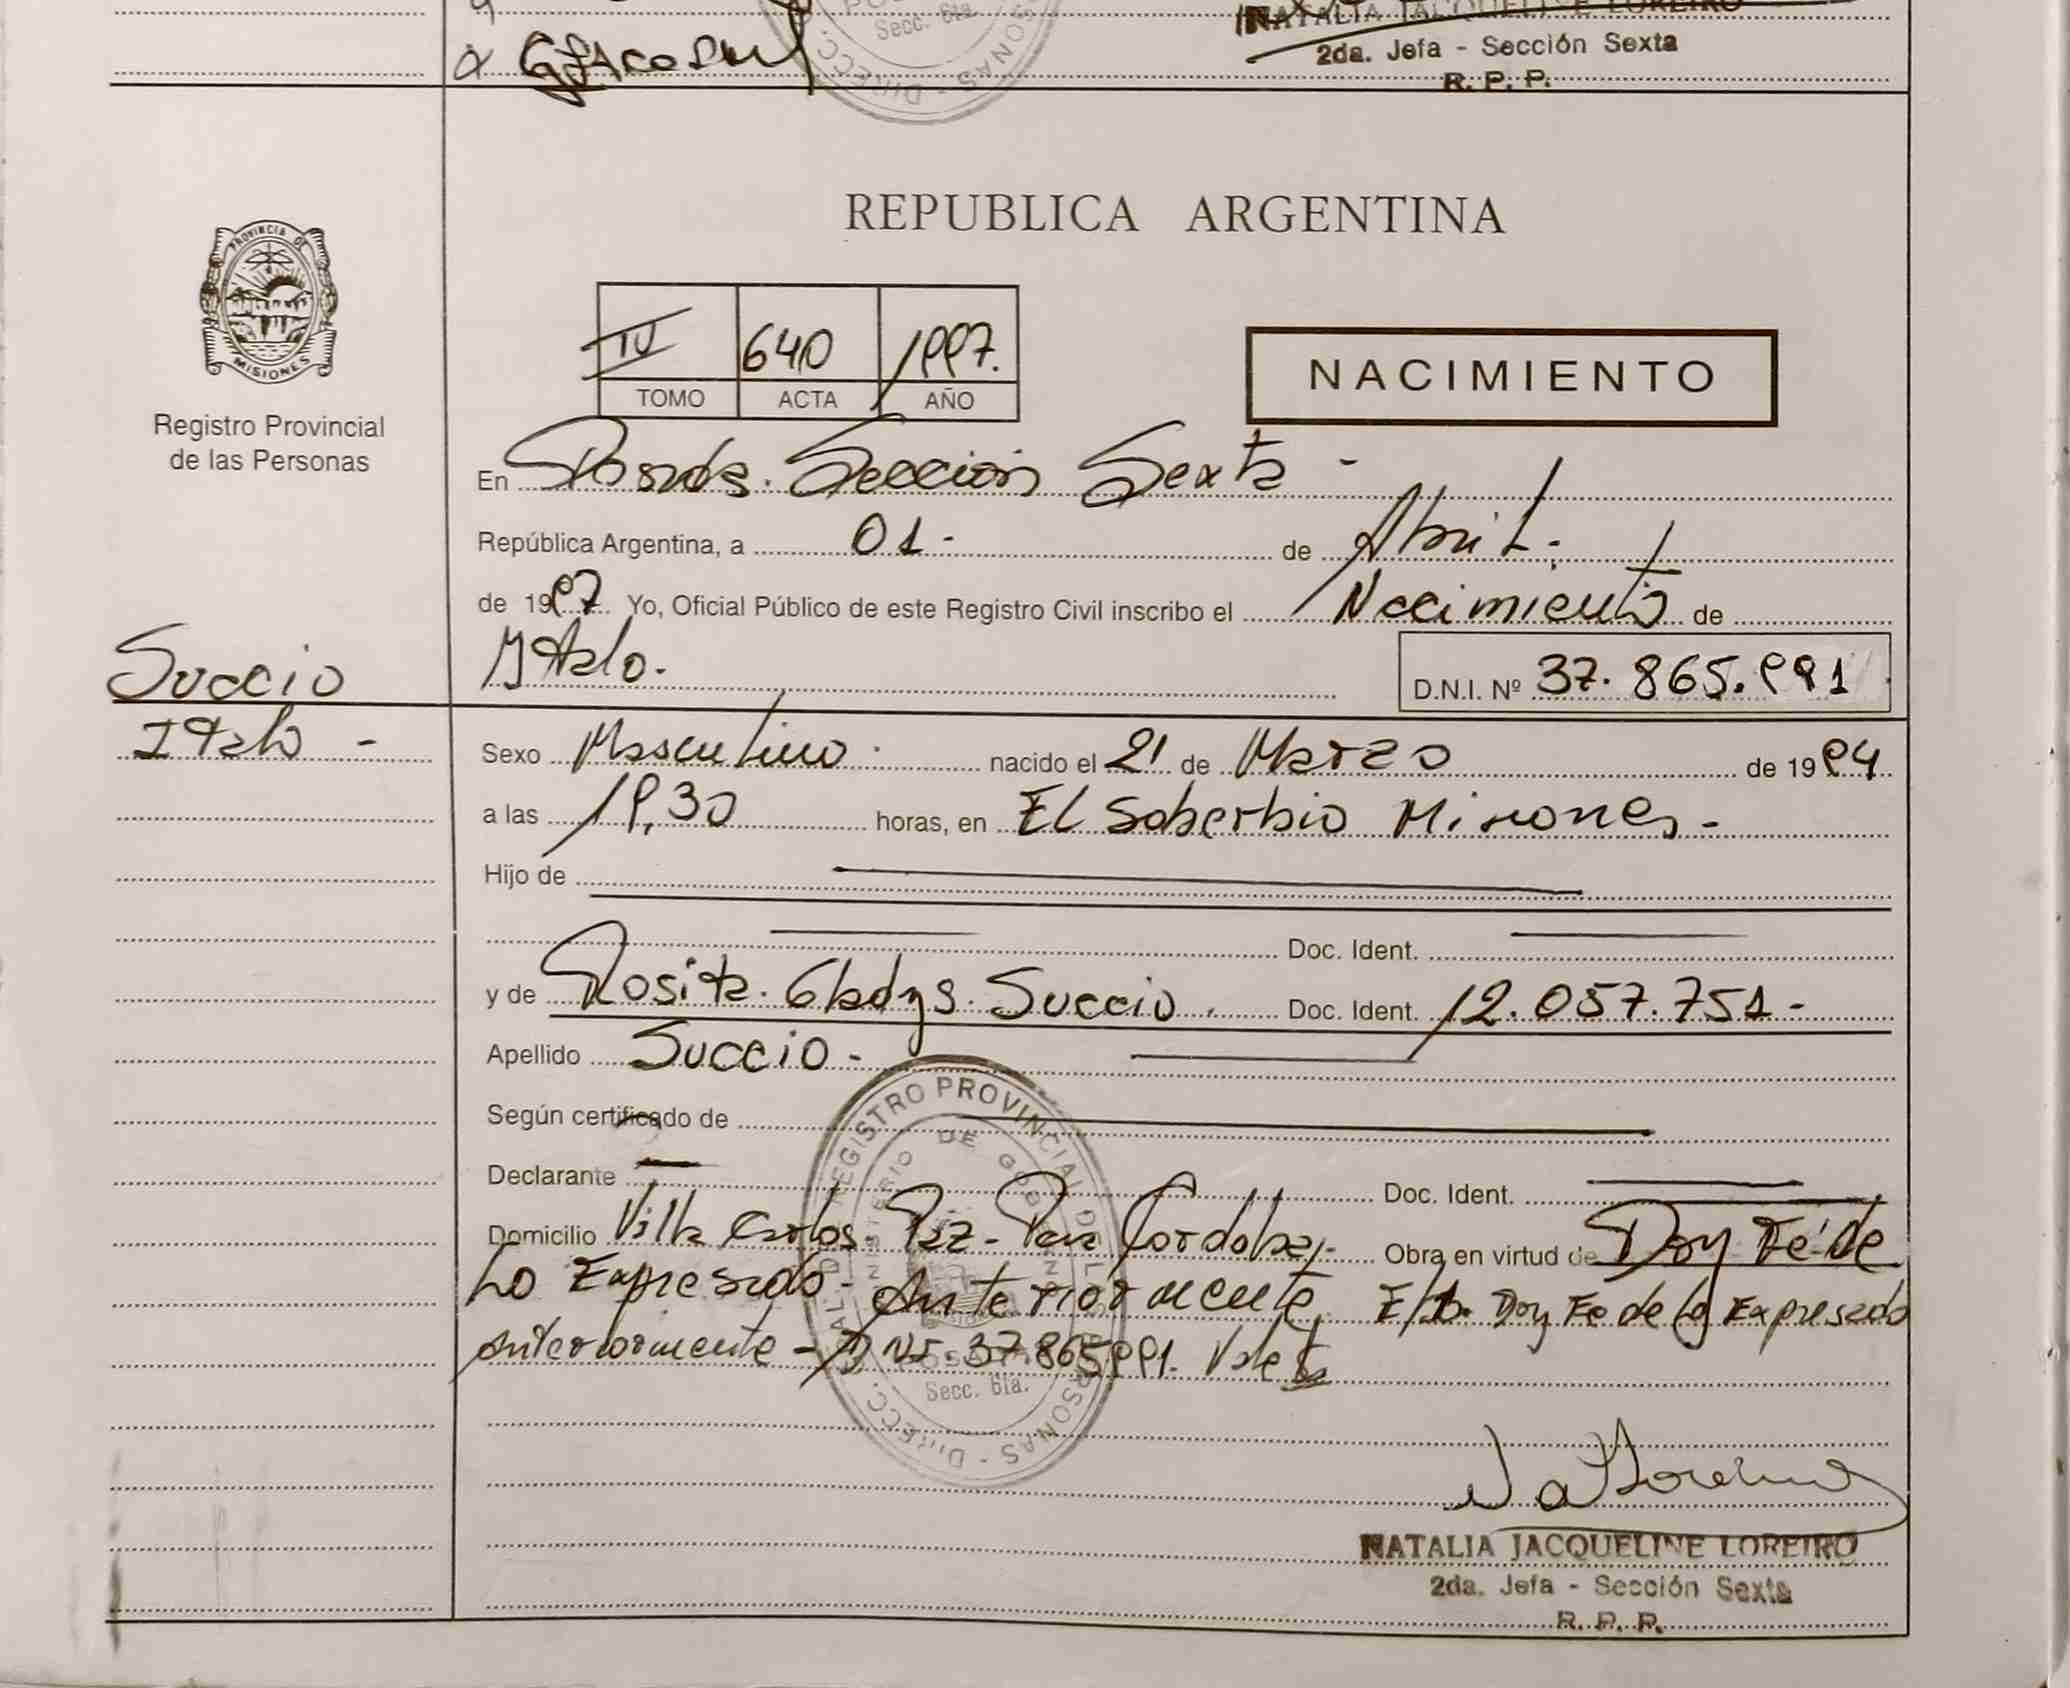 NATALIA JACQUELINE LOREIRO
2da. Jefa - Sección Sexta
R. P. P.
REPUBLICA ARGENTINA
PROVINCIA DE
MISIONES
Registro Provincial
de las Personas
IV 640 1997.
TOMO ACTA AÑO
NACIMIENTO
En Posadas. Sección Sexta -
República Argentina, a 01 - de Abril.
de 1997 Yo, Oficial Público de este Registro Civil inscribo el Nacimiento de
Succio
Italo -
Italo.
D.N.I. Nº 37.865.991
Sexo Masculino. nacido el 21 de Marzo de 1994
a las 19,30 horas, en El Soberbio Misiones -
Hijo de
Doc. Ident.
y de Rosita Gladys Succio. Doc. Ident. 12.057.751 -
Apellido Succio -
Según certificado de
Declarante Doc. Ident.
Domicilio Villa Carlos Paz - Córdoba, Obra en virtud de Doy Fé de
Lo Expresado - Anteriormente Doy Fe de lo Expresado
anteriormente - DNI. 37.865.991. Vale
REGISTRO PROVINCIAL DE LAS PERSONAS - DIRECC.
Secc. 6ta.
NATALIA JACQUELINE LOREIRO
2da. Jefa - Sección Sexta
R. P. P.